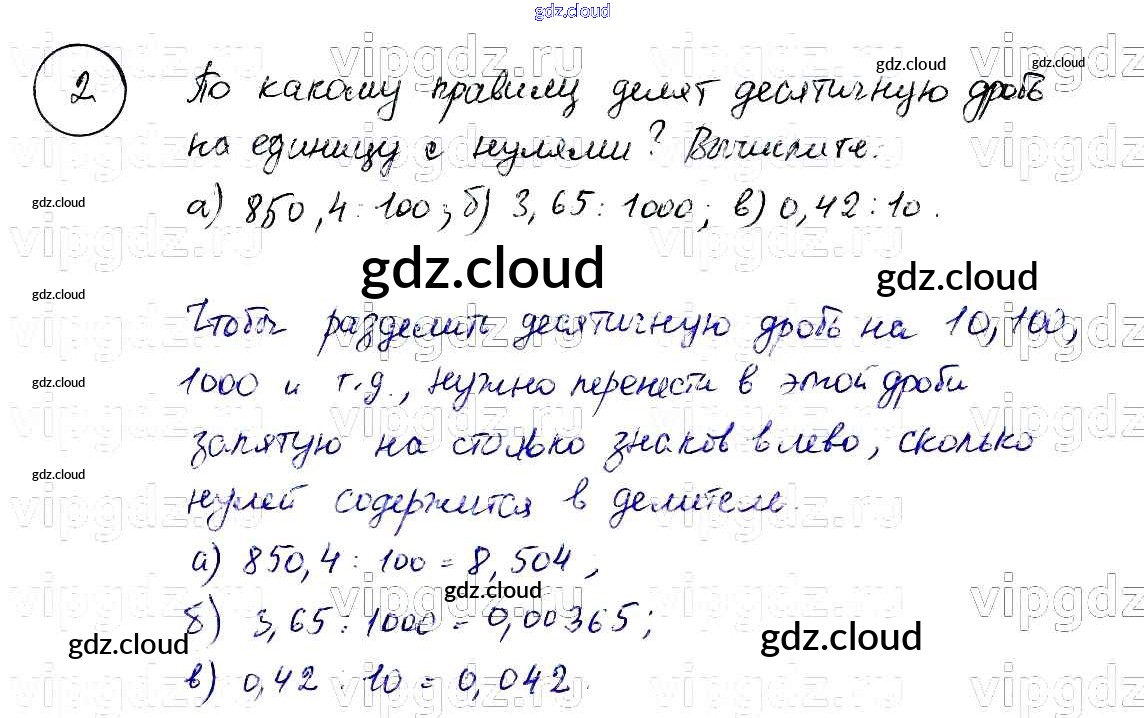 gdz.cloud
2 По какому правилу делят десятичную дробь
на единицу с нулями? Вычислите:
а) 850,4 : 100; б) 3,65 : 1000; в) 0,42 : 10.
Чтобы разделить десятичную дробь на 10, 100,
1000 и т.д., нужно перенести в этой дроби
запятую на столько знаков влево, сколько
нулей содержится в делителе.
а) 850,4 : 100 = 8,504;
б) 3,65 : 1000 = 0,00365;
в) 0,42 : 10 = 0,042.